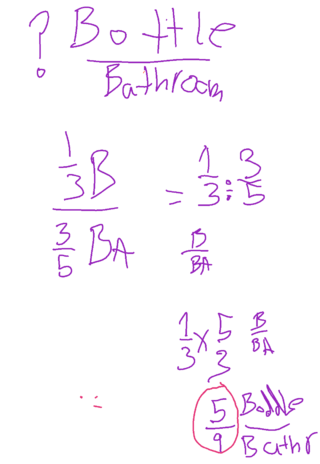 ? Bottle
Bathroom
1/3 B
3/5 BA
= 1/3 : 3/5
B/BA
1/3 x 5/3 B/BA
5/9 Bottle
Bathr